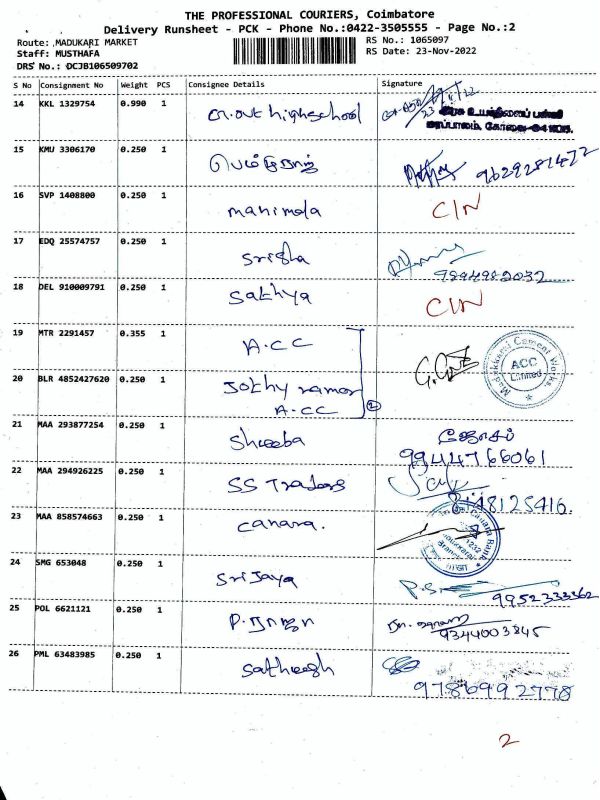 THE PROFESSIONAL COURIERS, Coimbatore
Delivery Runsheet - PCK - Phone No.:0422-3505555 - Page No.:2
Route: ,MADUKARI MARKET
RS No.: 1065097
Staff: MUSTHAFA
RS Date: 23-Nov-2022
DRS No.: DCJB106509702
S No Consignment No Weight PCS Consignee Details Signature
14 KKL 1329754 0.990 1 high school
அரசு உயர்நிலைப் பள்ளி
மரப்பாலம், கோவை-641105.
15 KMU 3306170 0.250 1 9629281472
16 SVP 1408800 0.250 1 manimala C/N
17 EDQ 25574757 0.250 1 Srisha
9894982032
18 DEL 910009791 0.250 1 Sathya C/N
19 MTR 2291457 0.355 1 A.C.C
Madukkarai Cement Works.
ACC
Limited
20 BLR 4852427620 0.250 1 Jothy ramar
A.C.C 2
21 MAA 293877254 0.250 1 Sheeba ஜோசப்
9944766061
22 MAA 294926225 0.250 1 SS Traders
48125416.
23 MAA 858574663 0.250 1 canara.
Canara Bank
24 SMG 653048 0.250 1 Sri Jaya
9952333362
25 POL 6621121 0.250 1 P. ராஜா
9344003845
26 PML 63483985 0.250 1 Satheesh
9786992778
2